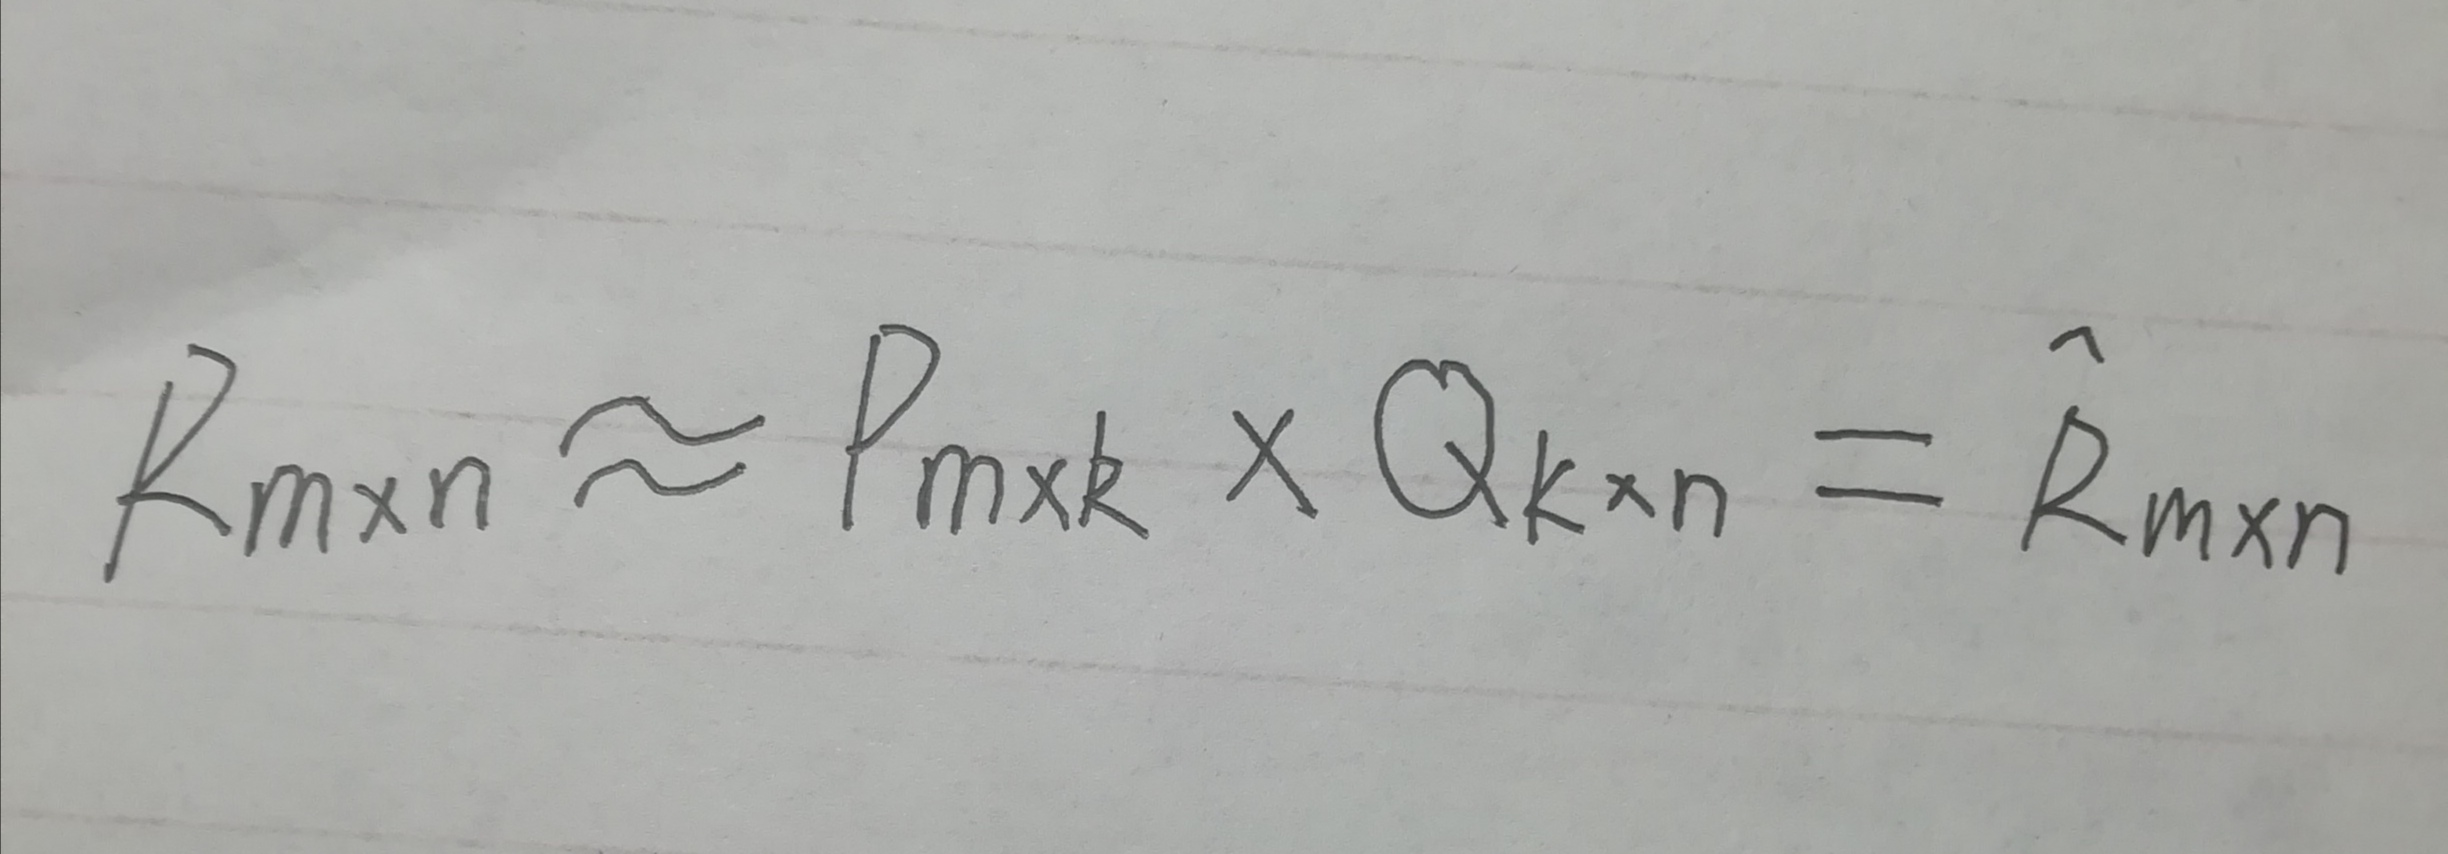 R_{m×n} ≈ P_{m×k} × Q_{k×n} = R̂_{m×n}